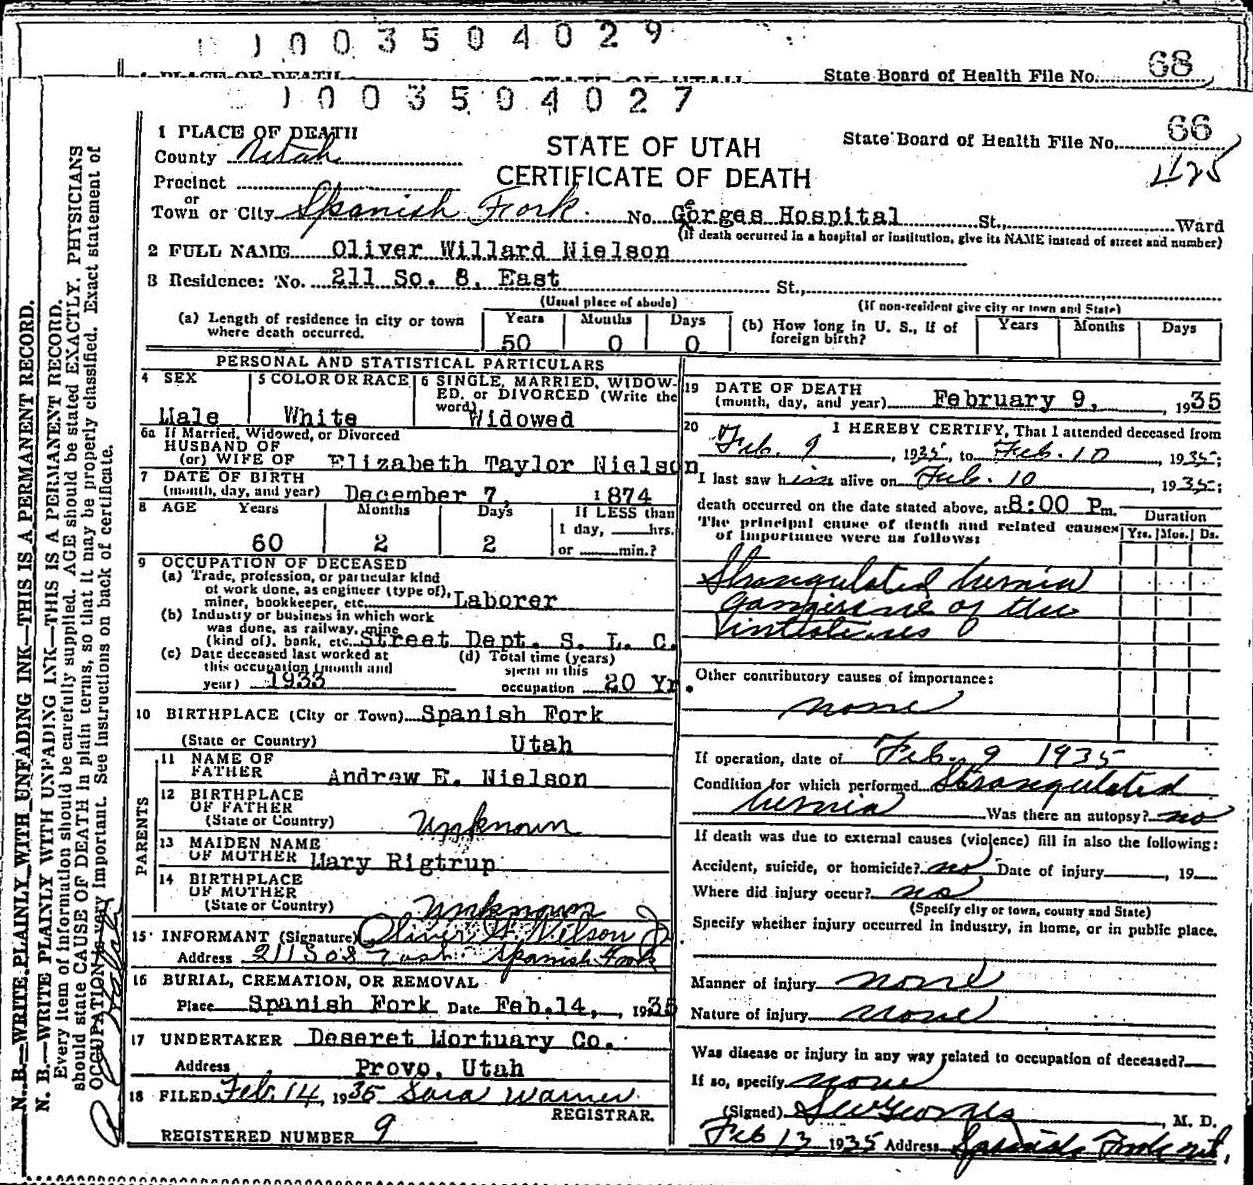 1003504029
State Board of Health File No. 68
1 PLACE OF DEATH STATE OF UTAH
1003504027
1 PLACE OF DEATH
County Utah
STATE OF UTAH
CERTIFICATE OF DEATH
State Board of Health File No. 66
425
Precinct
or
Town or City Spanish Fork No. Gorges Hospital St., Ward
e
(If death occurred in a hospital or institution, give its NAME instead of street and number)
2 FULL NAME Oliver Willard Nielson
3 Residence: No. 211 So. 8, East St.,
(Usual place of abode) (If non-resident give city or town and State)
(a) Length of residence in city or town where death occurred. Years 50 Months 0 Days 0
(b) How long in U. S., if of foreign birth? Years Months Days
PERSONAL AND STATISTICAL PARTICULARS
4 SEX Male
5 COLOR OR RACE White
6 SINGLE, MARRIED, WIDOWED, or DIVORCED (Write the word) Widowed
6a If Married, Widowed, or Divorced
HUSBAND OF
(or) WIFE OF Elizabeth Taylor Nielson
7 DATE OF BIRTH
(month, day, and year) December 7, 1874
8 AGE Years Months Days If LESS than
1 day, hrs.
60 2 2 or min.?
9 OCCUPATION OF DECEASED
(a) Trade, profession, or particular kind
of work done, as engineer (type of),
miner, bookkeeper, etc. Laborer
(b) Industry or business in which work
was done, as railway, mine
(kind of), bank, etc. Street Dept. S. L. C.
(c) Date deceased last worked at
this occupation (month and
year) 1933
(d) Total time (years)
spent in this
occupation 20 Yr.
10 BIRTHPLACE (City or Town) Spanish Fork
(State or Country) Utah
PARENTS
11 NAME OF
FATHER Andrew E. Nielson
12 BIRTHPLACE
OF FATHER
(State or Country) Unknown
13 MAIDEN NAME
OF MOTHER Mary Rigtrup
14 BIRTHPLACE
OF MOTHER
(State or Country) Unknown
15 INFORMANT (Signature) Oliver W. Nilson Jr
Address 211 So 8 East Spanish Fork
16 BURIAL, CREMATION, OR REMOVAL
Place Spanish Fork Date Feb.14, , 1935
17 UNDERTAKER Deseret Mortuary Co.
Address Provo, Utah
18 FILED Feb. 14, 1935 Sara Warner
REGISTRAR.
REGISTERED NUMBER 9
19 DATE OF DEATH
(month, day, and year) February 9, , 1935
20 I HEREBY CERTIFY, That I attended deceased from
Feb. 9, 1935, to Feb. 10, 1935;
I last saw him alive on Feb. 10, 1935;
death occurred on the date stated above, at 8:00 Pm.
The principal cause of death and related causes
of importance were as follows:
Duration
Yrs. Mos. Ds.
Strangulated hernia
gangirene of the
intistines
Other contributory causes of importance:
none
If operation, date of Feb. 9 1935
Condition for which performed Strangulated
hernia Was there an autopsy? no
If death was due to external causes (violence) fill in also the following:
Accident, suicide, or homicide? no Date of injury , 19
Where did injury occur? no
(Specify city or town, county and State)
Specify whether injury occurred in industry, in home, or in public place.
Manner of injury none
Nature of injury none
Was disease or injury in any way related to occupation of deceased?
If so, specify none
(Signed) , M. D.
Feb 13 1935 Address Spanish Fork Ut.
N. B.—WRITE PLAINLY WITH UNFADING INK—THIS IS A PERMANENT RECORD.
N. B.—WRITE PLAINLY WITH UNFADING INK—THIS IS A PERMANENT RECORD.
Every item of information should be carefully supplied. AGE should be stated EXACTLY. PHYSICIANS
should state CAUSE OF DEATH in plain terms, so that it may be properly classified. Exact statement of
OCCUPATION is very important. See instructions on back of certificate.